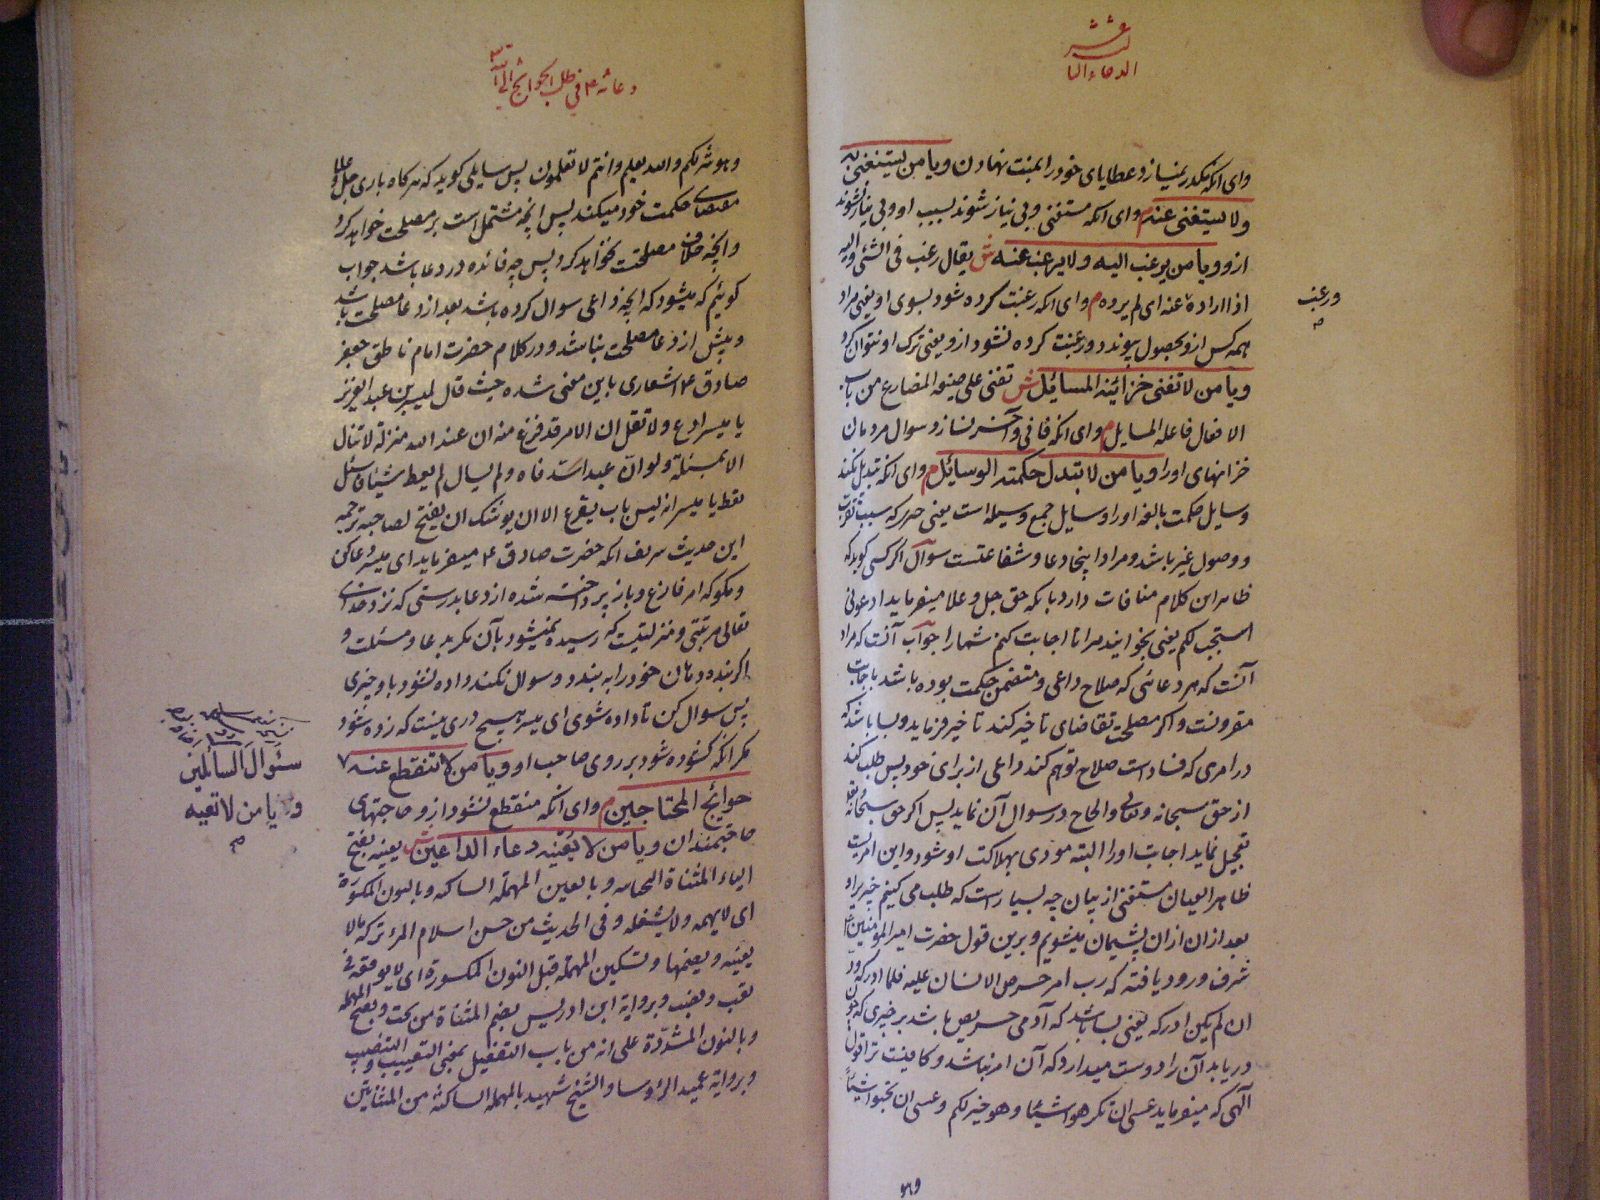 الدعاء الثالث عشر
وای آنکه مکدر نمیسازد عطایای خود را بمنت نهادن ویا من یستغنی به
ولا یستغنی عنه م وای آنکه مستغنی و بی نیاز شوند بسبب او و بی نیاز نشوند
ازو ویا من یرغب الیه ولا یرغب عنه ش یقال رغب فی الشئ والیه
اذا اراده عنه ای لم یرده م وای آنکه رغبت کرده شود بسوی او یعنی مراد
ورغب
همه کس ازو بحصول پیوندد و رغبت کرده نشود ازو یعنی ترک او نتوان کرد
ویا من لا تفنی خزائنه المسائل ش تفنی علی صیغه المضارع من باب
الافعال فاعله المسایل م وای آنکه فانی و آخر نسازد سوال مردمان
خزانهای او را ویا من لا تبدل حکمته الوسائل م وای آنکه تبدیل نکند
وسایل حکمت بالغه او را وسایل جمع وسیله است یعنی چیزی که سبب تقرب
و وصول غیر باشد و مراد اینجا دعا و شفاعتست سوال اگر کسی گوید که
ظاهر این کلام منافات دارد با آنکه حق جل و علا میفرماید ادعونی
استجب لکم یعنی بخوانید مرا تا اجابت کنم شما را جواب آنست که مراد
آنست که هر دعائی که صلاح داعی و متضمن حکمت بوده باشد باجابت
مقرونست و اگر مصلحت تقاضای تاخیر کند تاخیر فرماید و بسا باشد که
در امری که فساد است صلاح توهم کند داعی از برای خود پس طلب کند
از حق سبحانه وتعالی و الحاح در سوال آن نماید پس اگر حق سبحانه وتعالی
تعجیل نماید اجابت او را البته مودی بهلاکت او شود و این امریست
ظاهر العیان مستغنی از بیان چه بسیار است که طلب می کنیم چیزی را و
بعد از ان از ان پشیمان میشویم و برین قول حضرت امیر المؤمنین ع
شرف ورود یافته که رب امر حرص الانسان علیه فلما ادرکه ود
ان لم یکن ادرکه یعنی بسا باشد که آدمی حریص باشد بر چیزی که چون
دریابد آن را دوست میدارد که آن امر نباشد و کافیست ترا قول
الهی که میفرماید عسی ان تکرهوا شیئا وهو خیر لکم وعسی ان تحبوا شیئا
وهو
دعائه ع فی طلب الحوائج الی الله تعالی
وهو شر لکم والله یعلم وانتم لا تعلمون پس سایلی گوید که هر گاه باری جل وعلا
مقتضای حکمت خود میکند پس آنچه مشتمل است بر مصلحت خواهد کرد
وآنچه خلاف مصلحت نخواهد کرد پس چه فائده در دعا باشد جواب
گوئیم که میشود که آنچه داعی سوال کرده باشد بعد از دعا مصلحت باشد
و پیش از دعا مصلحت نباشد و در کلام حضرت امام ناطق جعفر
صادق ع اشعاری باین معنی شده حیث قال لمیسر بن عبد العزیز
یا میسر ادع ولا تقل ان الامر قد فرغ منه ان عند الله منزلة لا تنال
الا بمسئلة ولو ان عبدا سد فاه ولم یسال لم یعط شیئا فاسئل
تعط یا میسر انه لیس باب یقرع الا ان یوشک ان یفتح لصاحبه ترجمه
این حدیث شریف آنکه حضرت صادق ع میفرماید ای میسر دعا کن
و مگو که امر فارغ و باز پرداخته شده از دعا بدرستی که نزد خدای
تعالی مرتبتی و منزلتیست که رسیده نمیشود بآن مگر بدعا و مسئلت و
اگر بنده دهان خود را به بندد و سوال نکند داده نشود باو چیزی
پس سوال کن تا داده شوی ای میسر هیچ دری نیست که زده شود
مگر آنکه گشوده شود بر روی صاحب او ویا من لا تنقطع عنه
حوائج المحتاجین م وای آنکه منقطع نشود ازو حاجتهای
سئوال السائلین
ویا من لا تعیه
حاجتمندان ویا من لا یعنیه دعاء الداعین ش یعنیه بفتح
الیاء المثناة التحتانیه وبالعین المهملة الساکنه وبالنون المکسورة
ای لا یهمه ولا یشغله وفی الحدیث من حسن اسلام المرء ترکه مالا
یعنیه وبضمها وتسکین المهملة قبل النون المکسورة ای لا یوقعه فی
تعب ونصب وبروایة ابن ادریس بضم المثناة من تحت وبفتح المهملة
وبالنون المشددة علی انه من باب التفعیل بمعنی التعییب والتنصیب
وبروایة عمید الرؤسا والشیخ شهید بالمهملة الساکنة من المثناتین